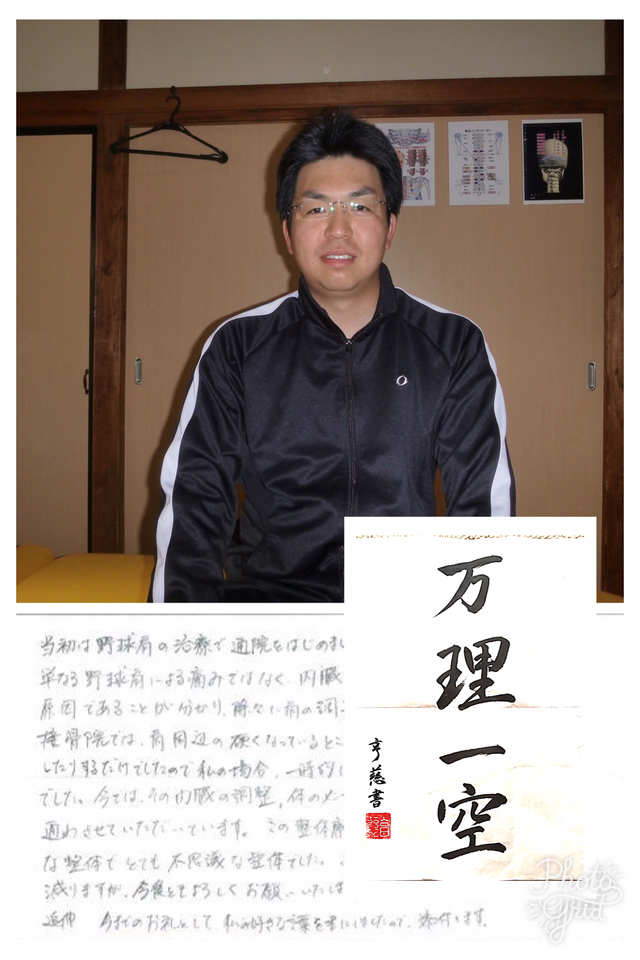 当初は野球肩の治療で通院をはじめまし
単なる野球肩による痛みではなく、内臓
原因であることが分かり、除々に肩の調
接骨院では、肩周辺の硬くなっているとこ
したりするだけでしたので私の場合、一時的
でした。今では、その内臓の調整、体のメ
通わさせていただいています。この整体療
な整体でとても不思議な整体でした。
減りますが、今後ともよろしくお願いいたしま
追伸 今までのお礼として、私の好きな言葉を書にしましたので、添付します。
万理一空
亨慈書
Photo
Grid